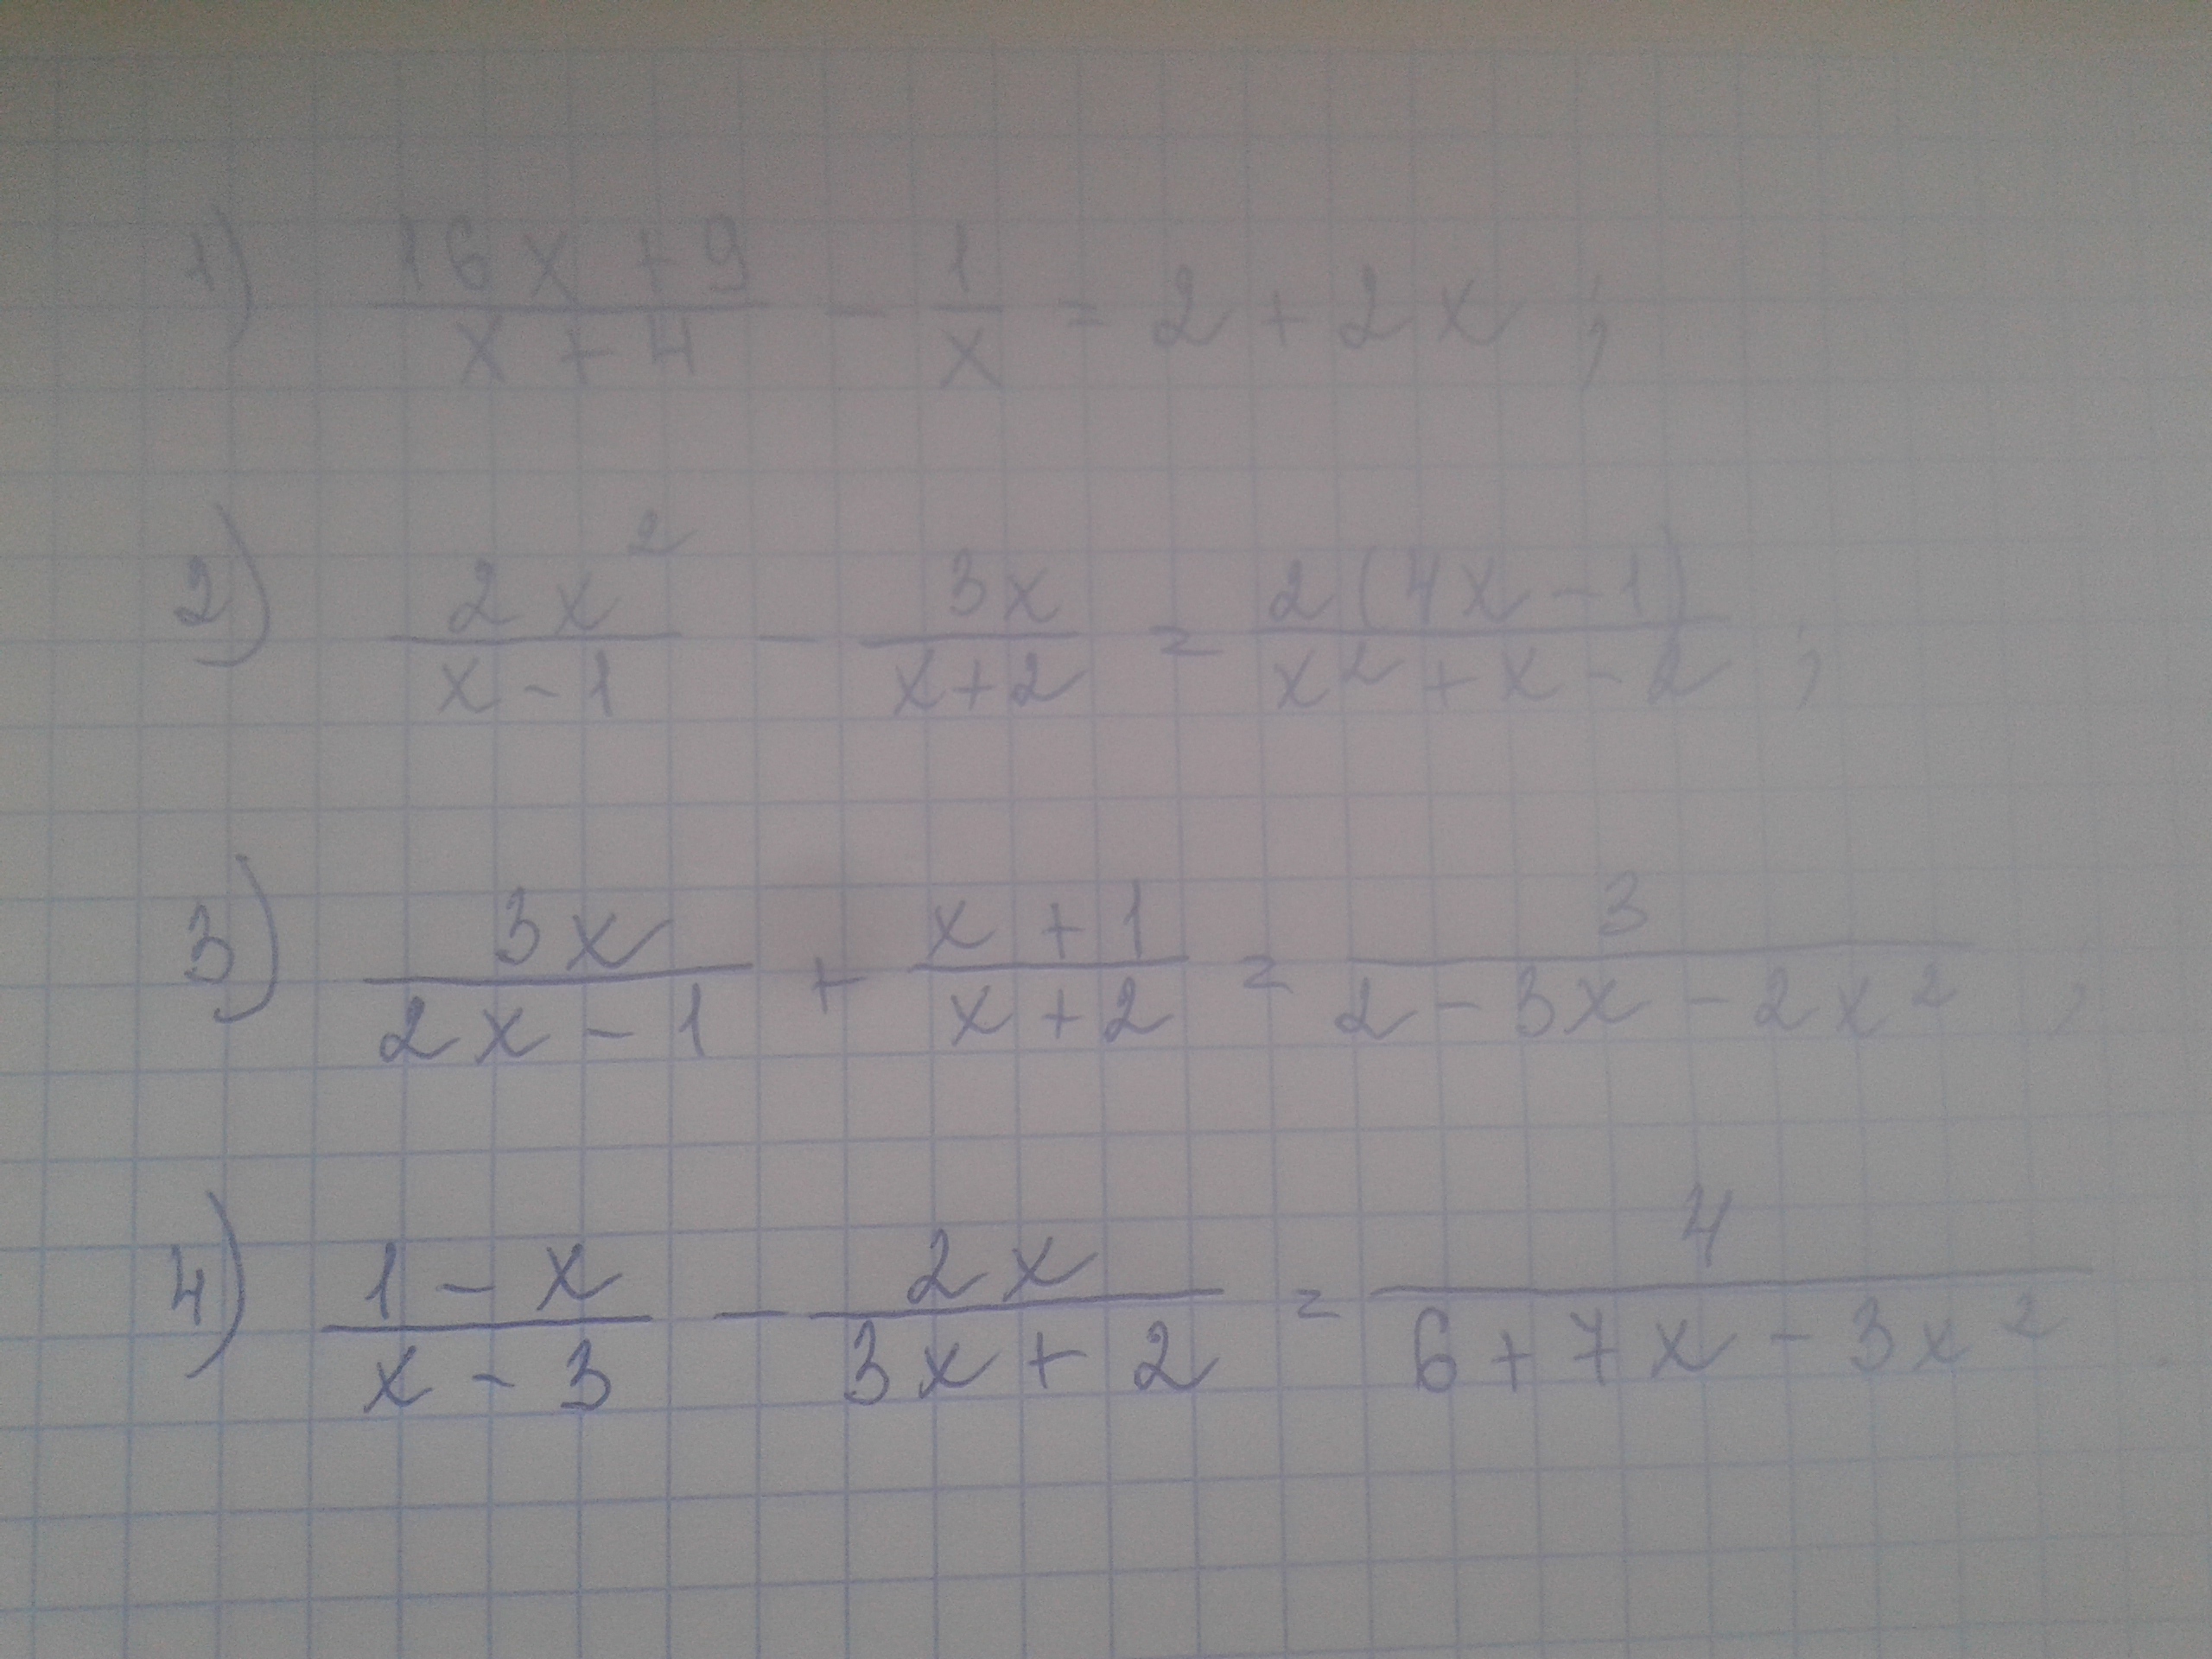 1) (16x + 9)/(x + 4) - 1/x = 2 + 2x ;
2) 2x²/(x - 1) - 3x/(x + 2) = 2(4x - 1)/(x² + x - 2) ;
3) 3x/(2x - 1) + (x + 1)/(x + 2) = 3/(2 - 3x - 2x²) ;
4) (1 - x)/(x - 3) - 2x/(3x + 2) = 4/(6 + 7x - 3x²)